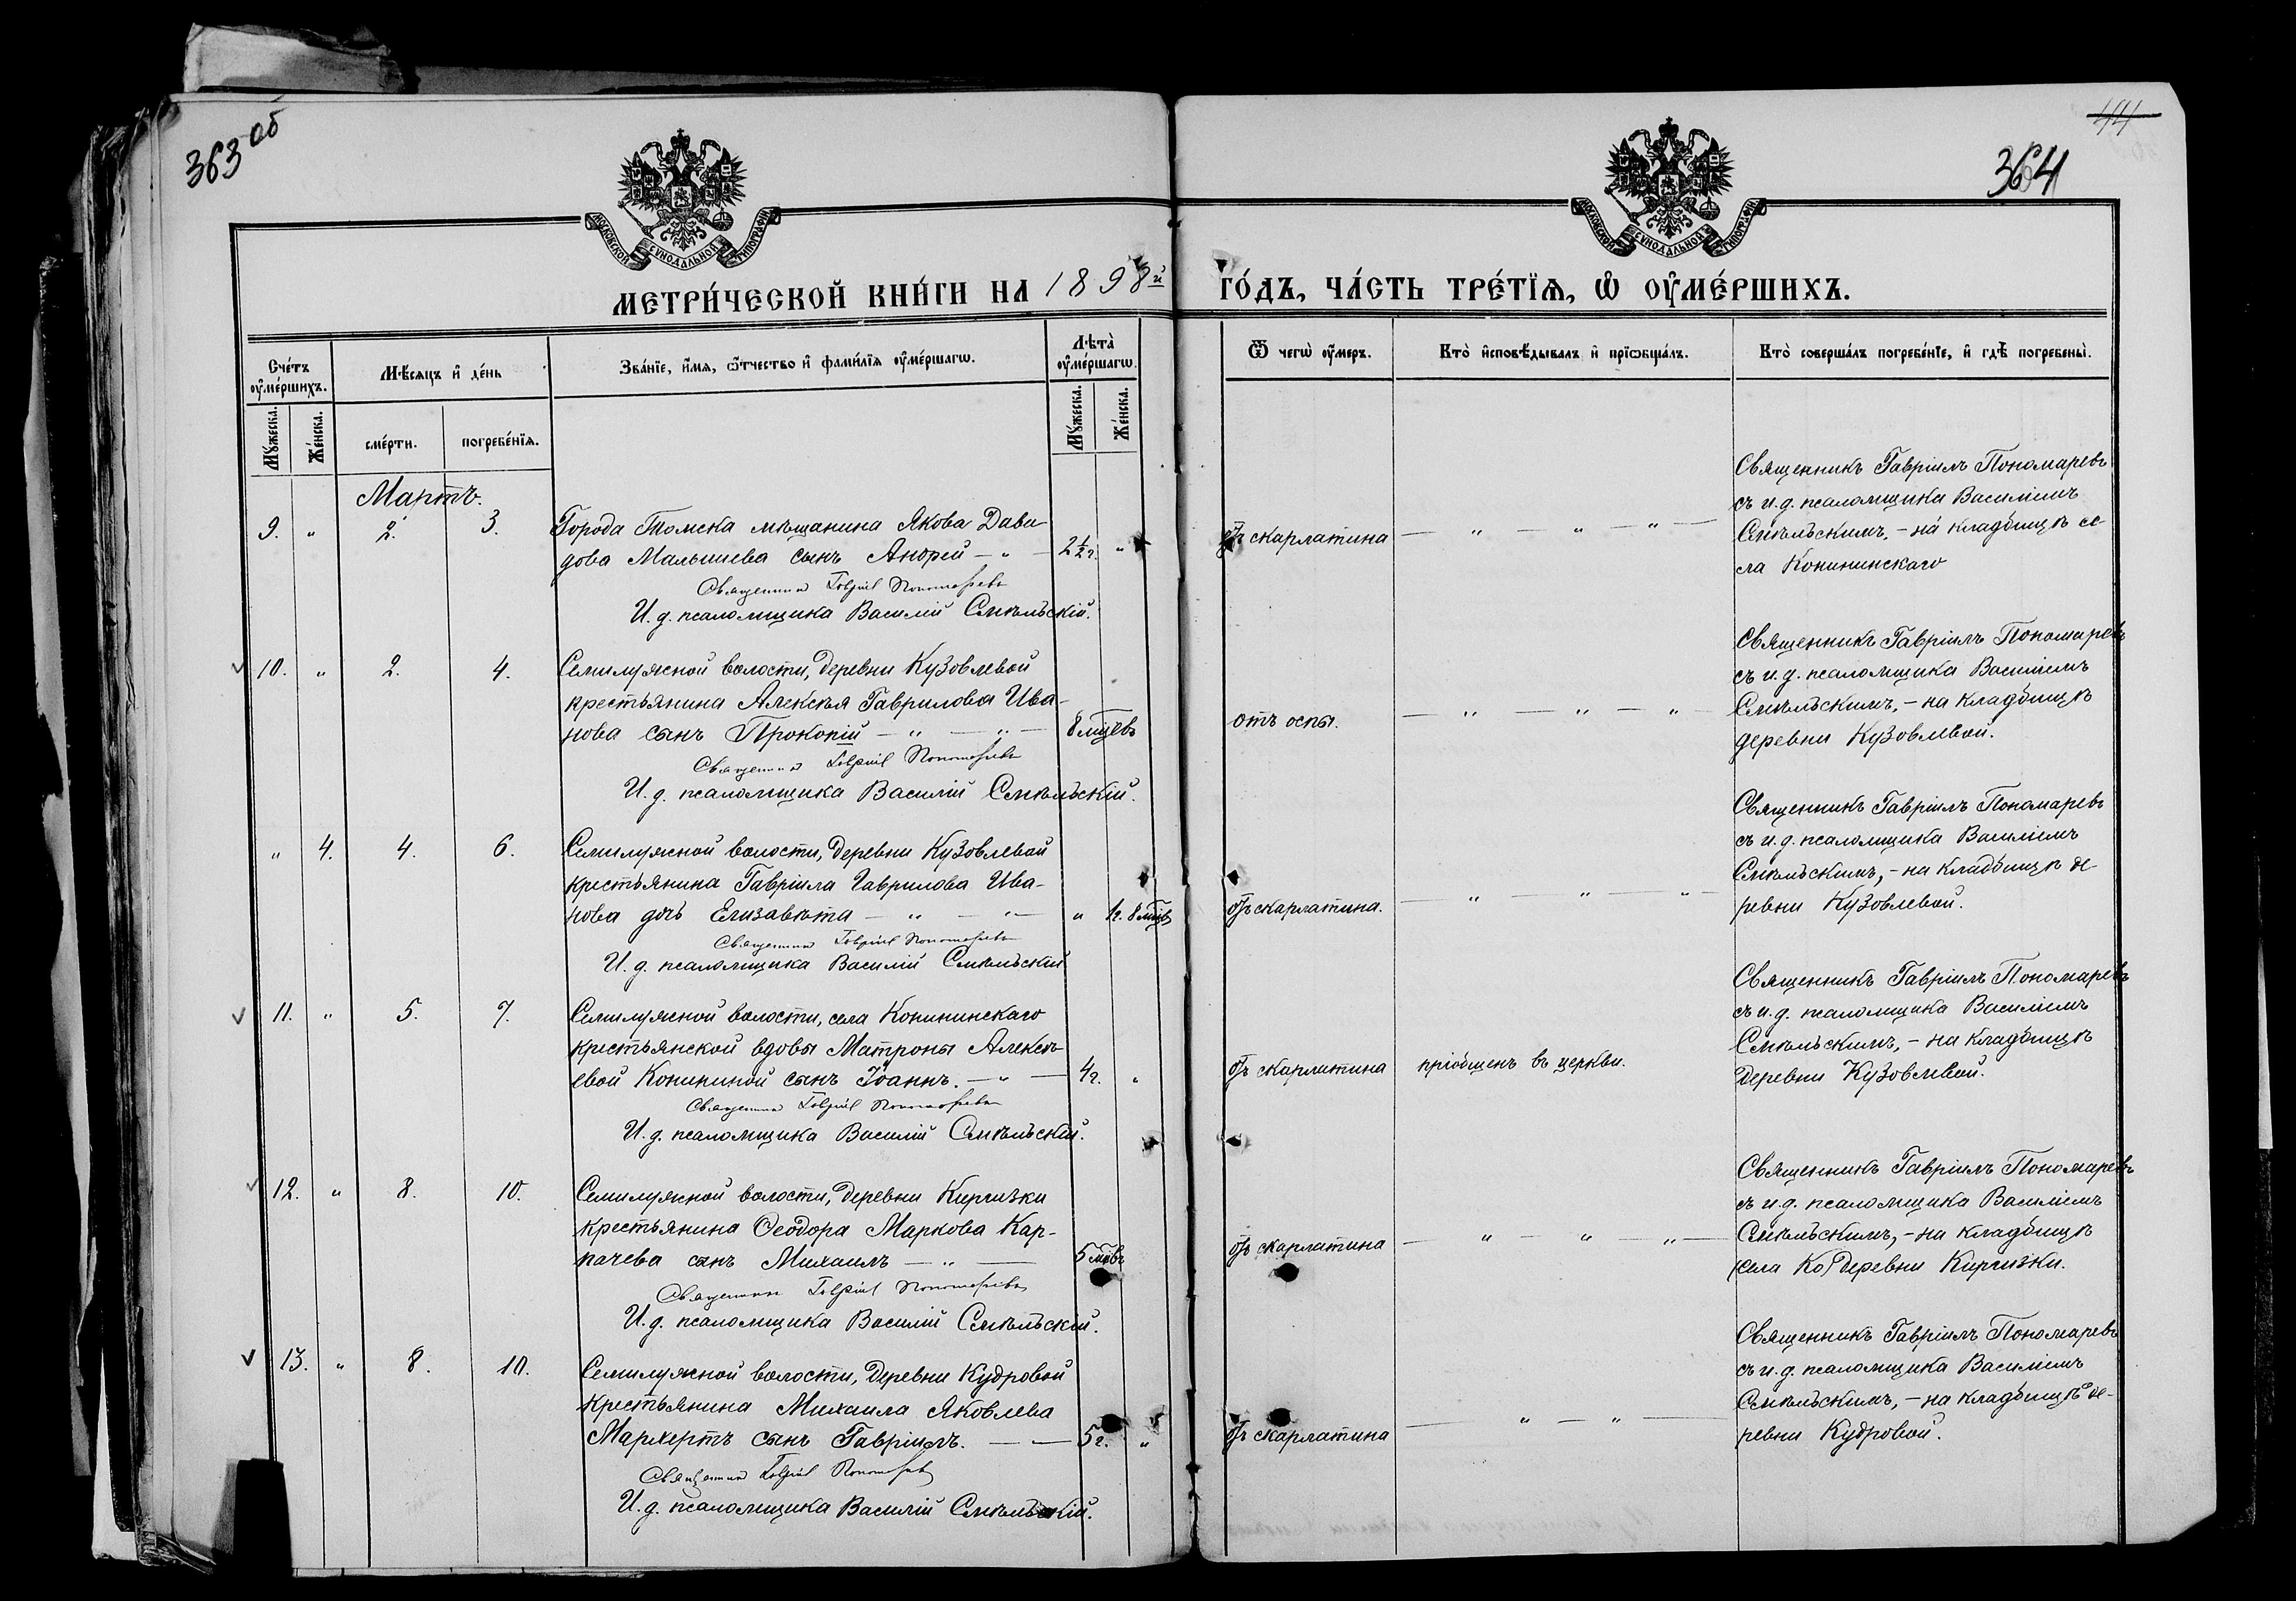 363 об
44
364
МОСКОВСКОЙ СѴНОДАЛЬНОЙ ТИПОГРАФІИ
МОСКОВСКОЙ СѴНОДАЛЬНОЙ ТИПОГРАФІИ
МЕТРИ́ЧЕСКОЙ КНИ́ГИ НА 1898й ГО́ДЪ, ЧА́СТЬ ТРЕ́ТЇѦ, Ѡ ОУ҆МЕ́РШИХЪ.
Сче́тъ оу҆ме́ршихъ.
Мꙋ́жеска.
Же́нска.
Мѣ́сѧцъ и҆ де́нь
сме́рти.
погребе́нїѧ.
Зва́нїе, и҆́мѧ, ѻ҆́тчество и҆ фами́лїѧ оу҆ме́ршагѡ.
Лѣ́та оу҆ме́ршагѡ.
Мꙋ́жеска.
Же́нска.
Ѿ чегѡ̀ оу҆́меръ.
Кто̀ и҆сповѣ́дывалъ и҆ прїѡбща́лъ.
Кто̀ соверша́лъ погребе́нїе, и҆ гдѣ̀ погребены̀.
Мартъ.
9. " 2. 3. Города Томска мѣщанина Якова Дави-
дова Малышева сынъ Андрей — " — 2½ г. "
Священникъ Гавріилъ Пономаревъ
И. д. псаломщика Василій Смѣльскій.
отъ скарлатина — " — " — " —
Священникъ Гавріилъ Пономаревъ
съ и. д. псаломщика Василіемъ
Смѣльскимъ, – на кладбищѣ се-
ла Конининскаго
10. " 2. 4. Семилужной волости, деревни Кузовлевой
крестьянина Алексѣя Гаврилова Ива-
нова сынъ Прокопій — " — " — 8 мцевъ
Священникъ Гавріилъ Пономаревъ
И. д. псаломщика Василій Смѣльскій.
отъ оспы. — " — " — " —
Священникъ Гавріилъ Пономаревъ
съ и. д. псаломщика Василіемъ
Смѣльскимъ, – на кладбищѣ
деревни Кузовлевой.
" 4. 4. 6. Семилужной волости, деревни Кузовлевой
крестьянина Гавріила Гаврилова Ива-
нова дочь Елизавета — " — " — " 1г. 8 мцв
Священникъ Гавріилъ Пономаревъ
И. д. псаломщика Василій Смѣльскій
отъ скарлатина. — " — " — " —
Священникъ Гавріилъ Пономаревъ
съ и. д. псаломщика Василіемъ
Смѣльскимъ, – на кладбищѣ де-
ревни Кузовлевой.
11. " 5. 7. Семилужной волости, села Конининскаго
крестьянской вдовы Матроны Алексѣ-
евой Конининой сынъ Іоаннъ. — " — 4г. "
Священникъ Гавріилъ Пономаревъ
И. д. псаломщика Василій Смѣльскій.
отъ скарлатина пріобщенъ въ церкви.
Священникъ Гавріилъ Пономаревъ
съ и. д. псаломщика Василіемъ
Смѣльскимъ, – на кладбищѣ
деревни Кузовлевой.
12. " 8. 10. Семилужной волости, деревни Киргизки
крестьянина Ѳеодора Маркова Кар-
пачева сынъ Михаилъ — " — 5 мцвъ
Священникъ Гавріилъ Пономаревъ
И. д. псаломщика Василій Смѣльскій.
отъ скарлатина — " — " — " —
Священникъ Гавріилъ Пономаревъ
съ и. д. псаломщика Василіемъ
Смѣльскимъ, – на кладбищѣ
(села Ко) деревни Киргизки.
13. " 8. 10. Семилужной волости, деревни Кудровой
крестьянина Михаила Яковлева
Мархертъ сынъ Гавріилъ. — — 5 г. "
Священникъ Гавріилъ Пономаревъ
И. д. псаломщика Василій Смѣльскій.
отъ скарлатина — " — " —
Священникъ Гавріилъ Пономаревъ
съ и. д. псаломщика Василіемъ
Смѣльскимъ, – на кладбищѣ де-
ревни Кудровой.